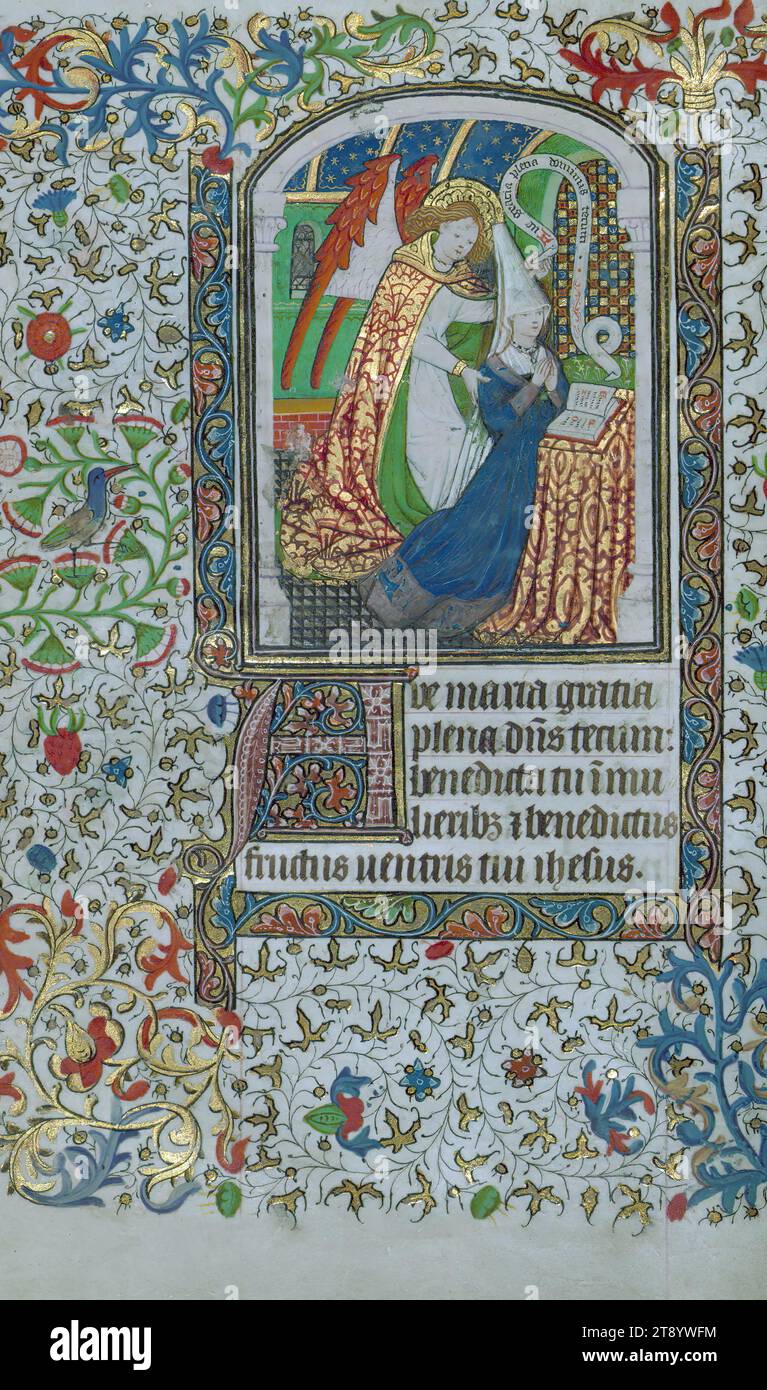 Aue gratia plena dominus tecum
Aue maria gratia
plena dn̄s tecum:
benedicta tu ī mu
lieribꝫ ⁊ benedictus
fructus uentris tui ihesus.
alamy
alamy
Image ID: 2T8YWFM
www.alamy.com